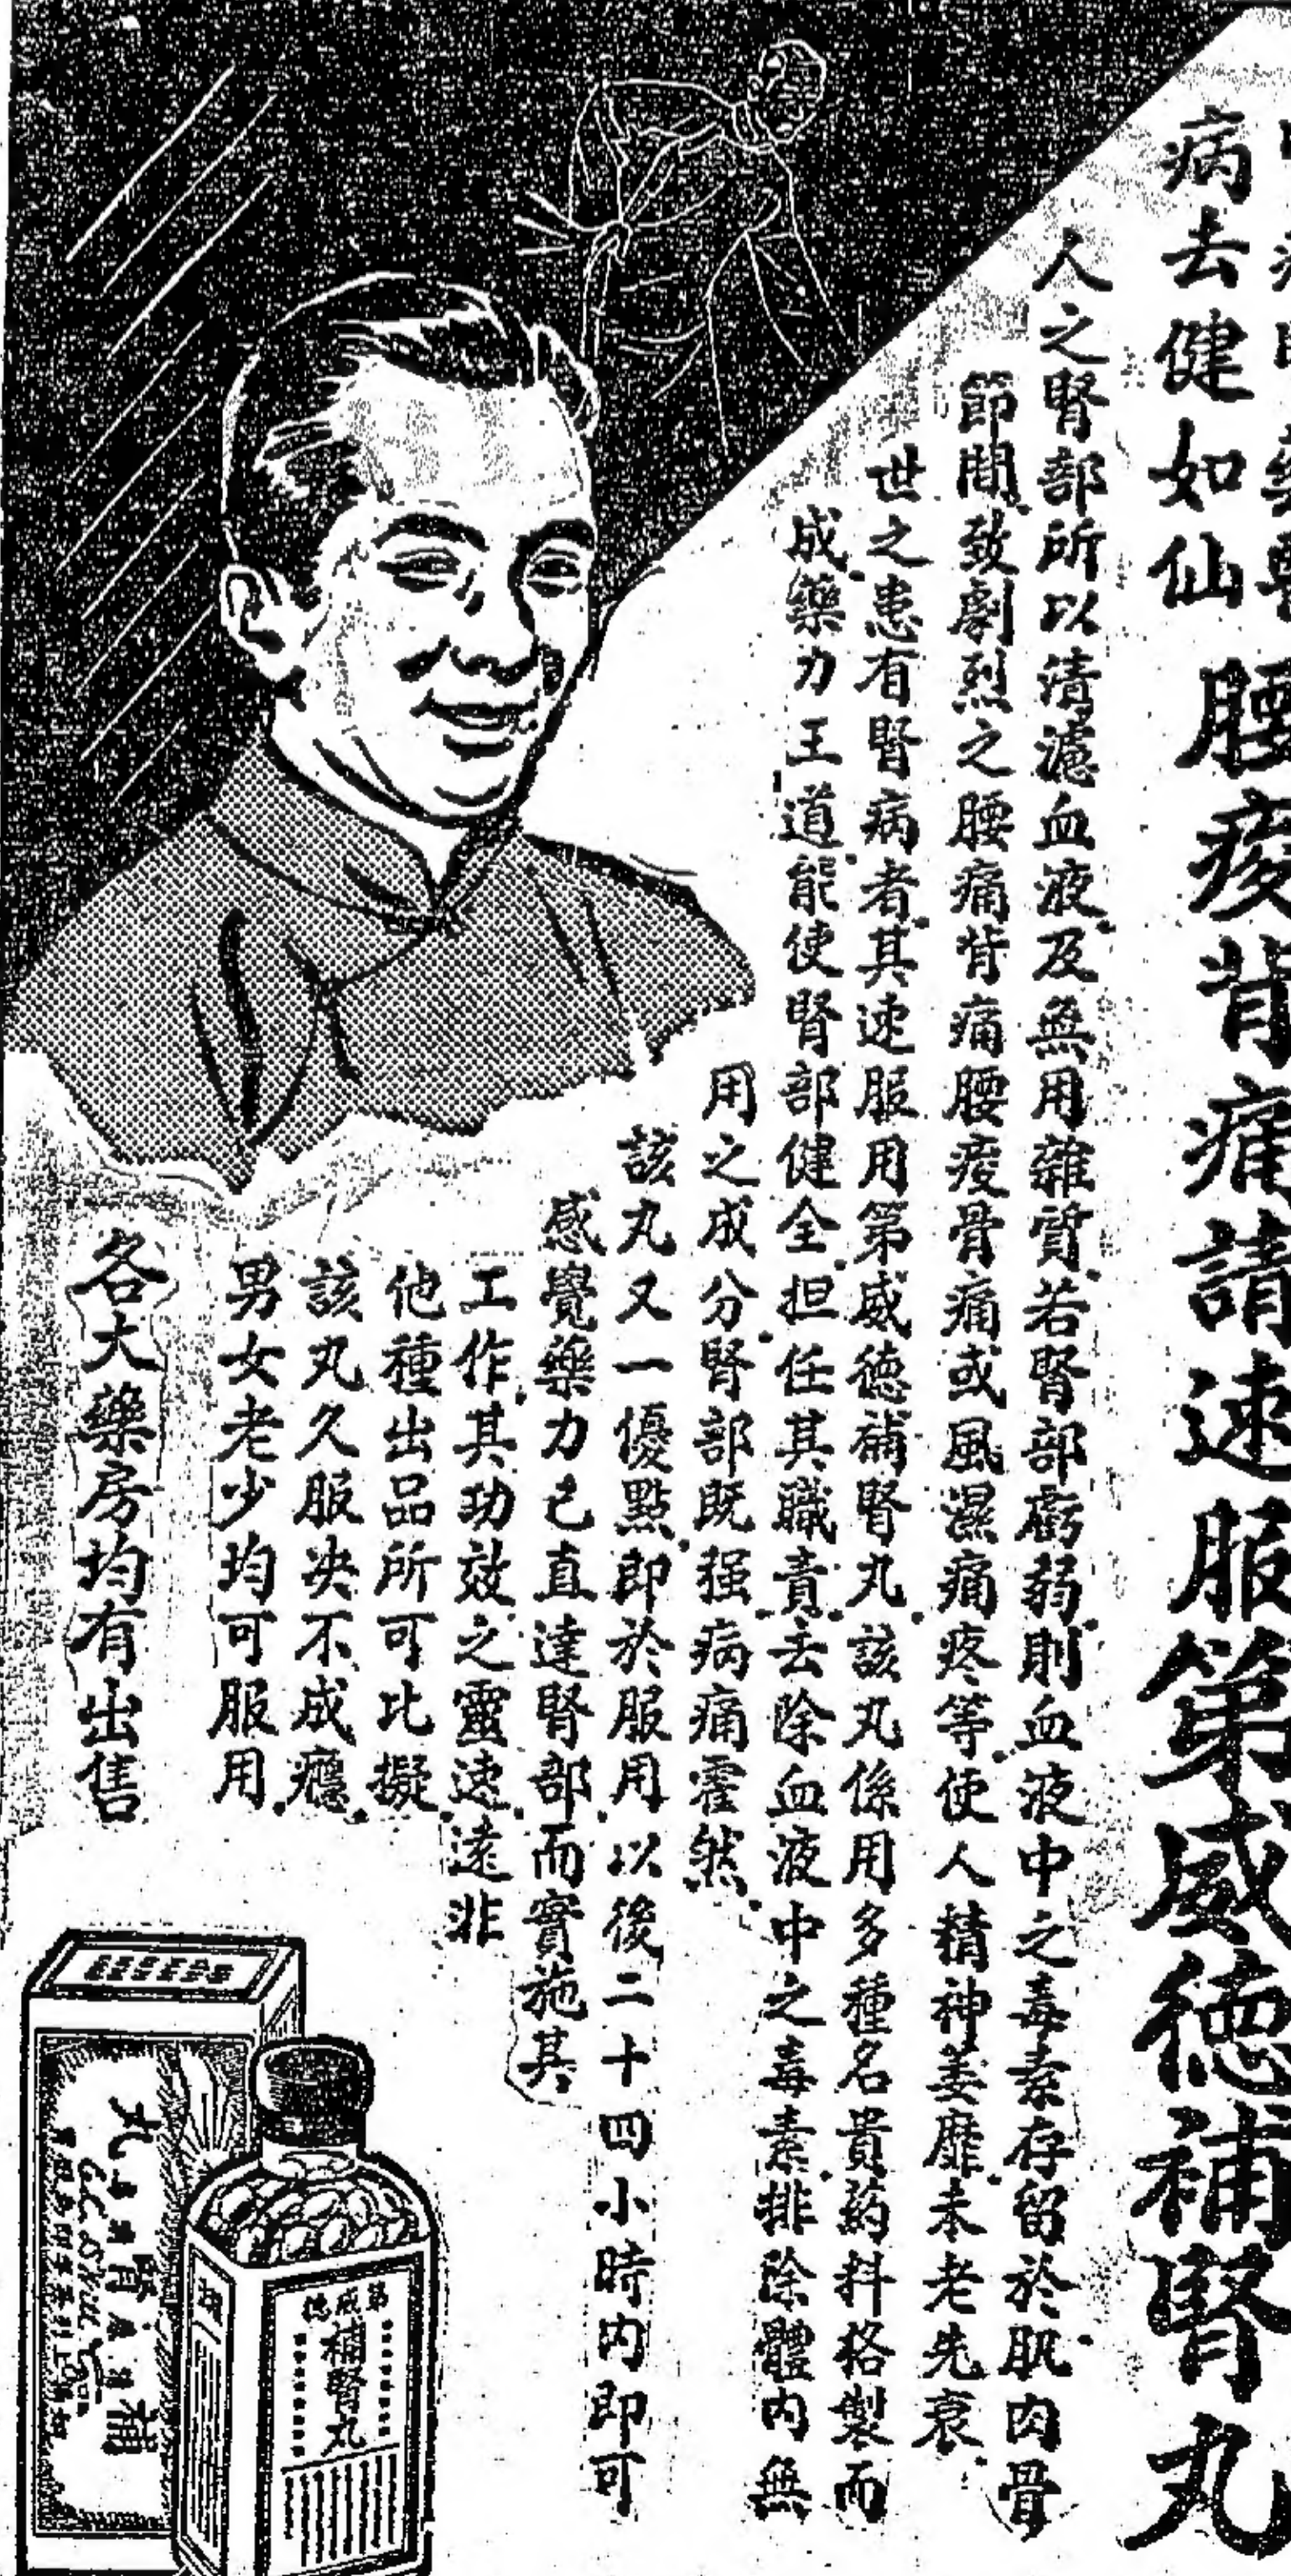 病去健如仙
腰痠背痛請速服第威德補腎丸
人之腎部所以清濾血液及無用雜質若腎部虧弱則血液中之毒素存留於肌肉骨
節間致劇烈之腰痛背痛腰痠骨痛或風濕痛疼等使人精神萎靡未老先衰
世之患有腎病者其速服用第威德補腎丸該丸係用多種名貴药料格製而
成藥力王道能使腎部健全担任其職責去除血液中之毒素排除體內無
用之成分腎部既强病痛霍然
該丸又一優點即於服用以後二十四小時內即可
感覺藥力已直達腎部而實施其
工作其功效之靈速遠非
他種出品所可比擬
該丸久服决不成癮
男女老少均可服用
各大藥房均有出售
第威德
補腎丸